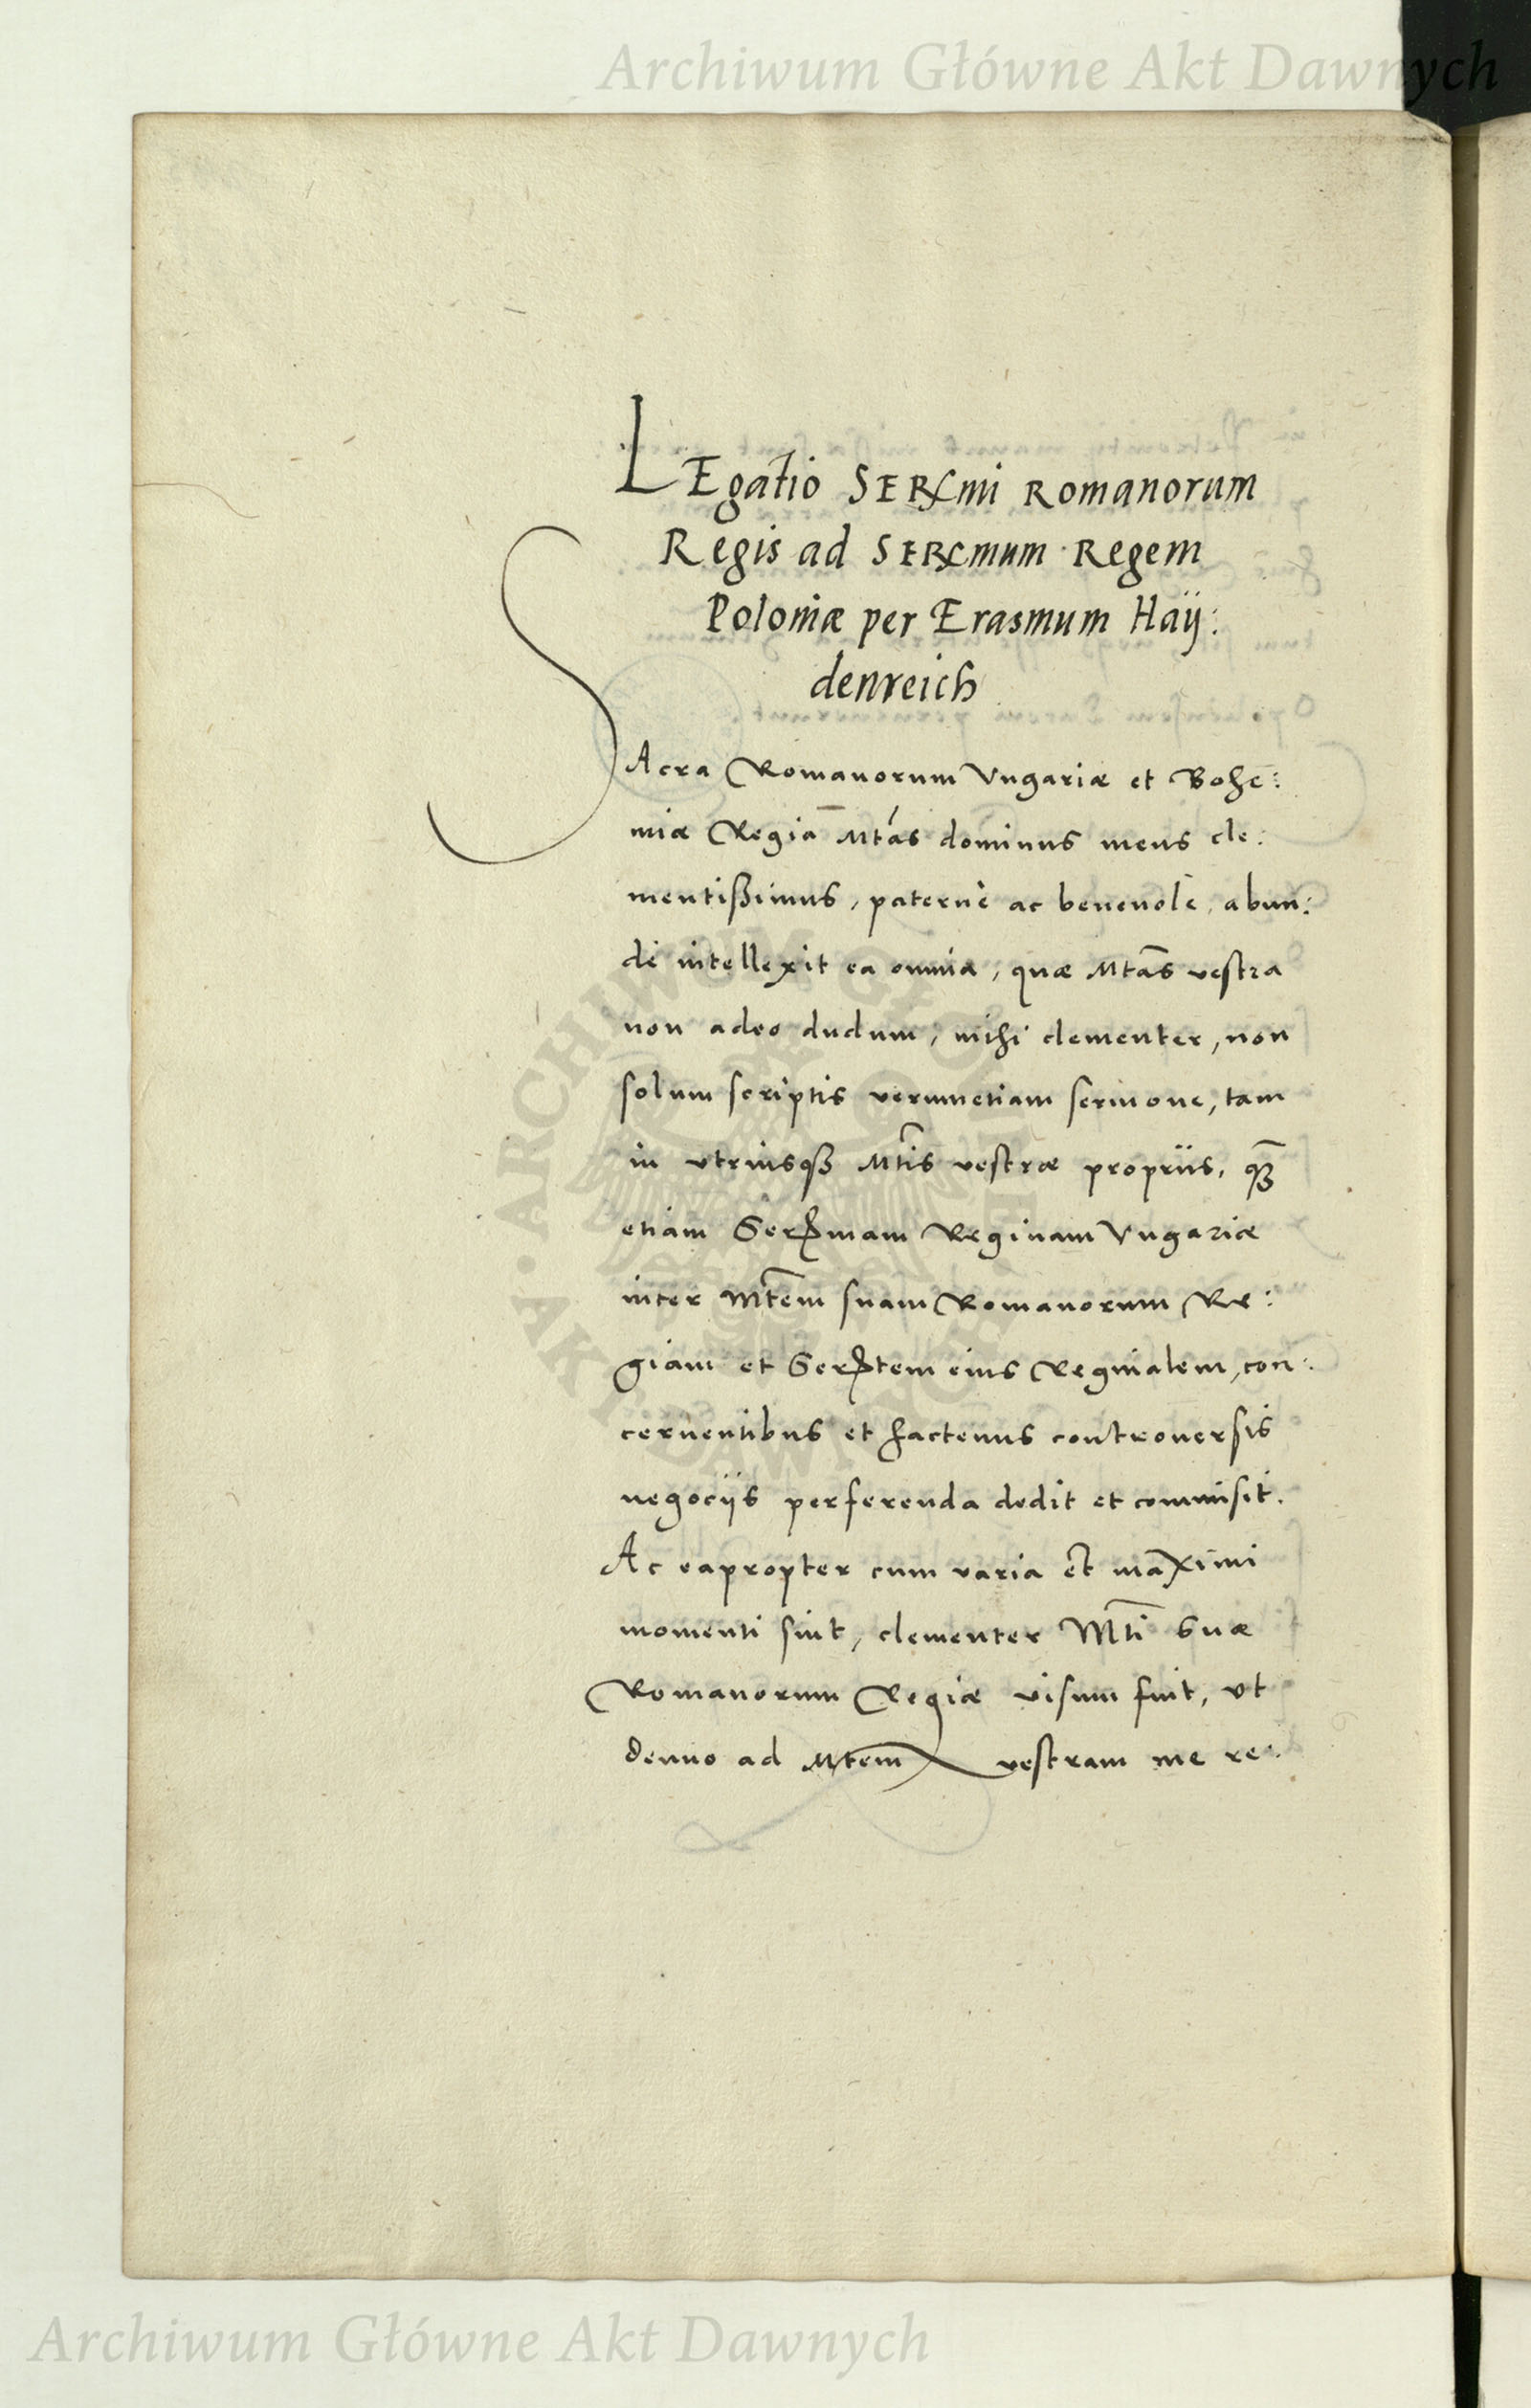 Archiwum Główne Akt Dawnych
LEgatio SERmi Romanorum
Regis ad SERmum Regem
Poloniæ per Erasmum Haÿ:
denreich
SAcra Romanorum Vngariæ et Bohe:
miæ Regia Mtas dominus meus cle:
mentißimus, paternè ac beneuolè, abun:
dè intellexit ea omnia, quæ Mtas vestra
non adeo dudum, mihi clementer, non
solum scriptis verumetiam sermone, tam
in vtriusqꝫ Mtis vestræ propriis, qꝫ
etiam Sermam Reginam Vngariæ
inter Mtem suam Romanorum Re:
giam et Sertem eius Reginalem, con:
cernentibus et hactenus controuersis
negocijs perferenda dedit et commisit.
Ac eapropter cum varia et maximi
momenti sint, clementer Mti Suæ
Romanorum Regiæ visum fuit, vt
denuo ad Mtem vestram me re:
ARCHIWUM
AKT DAWNYCH
Archiwum Główne Akt Dawnych